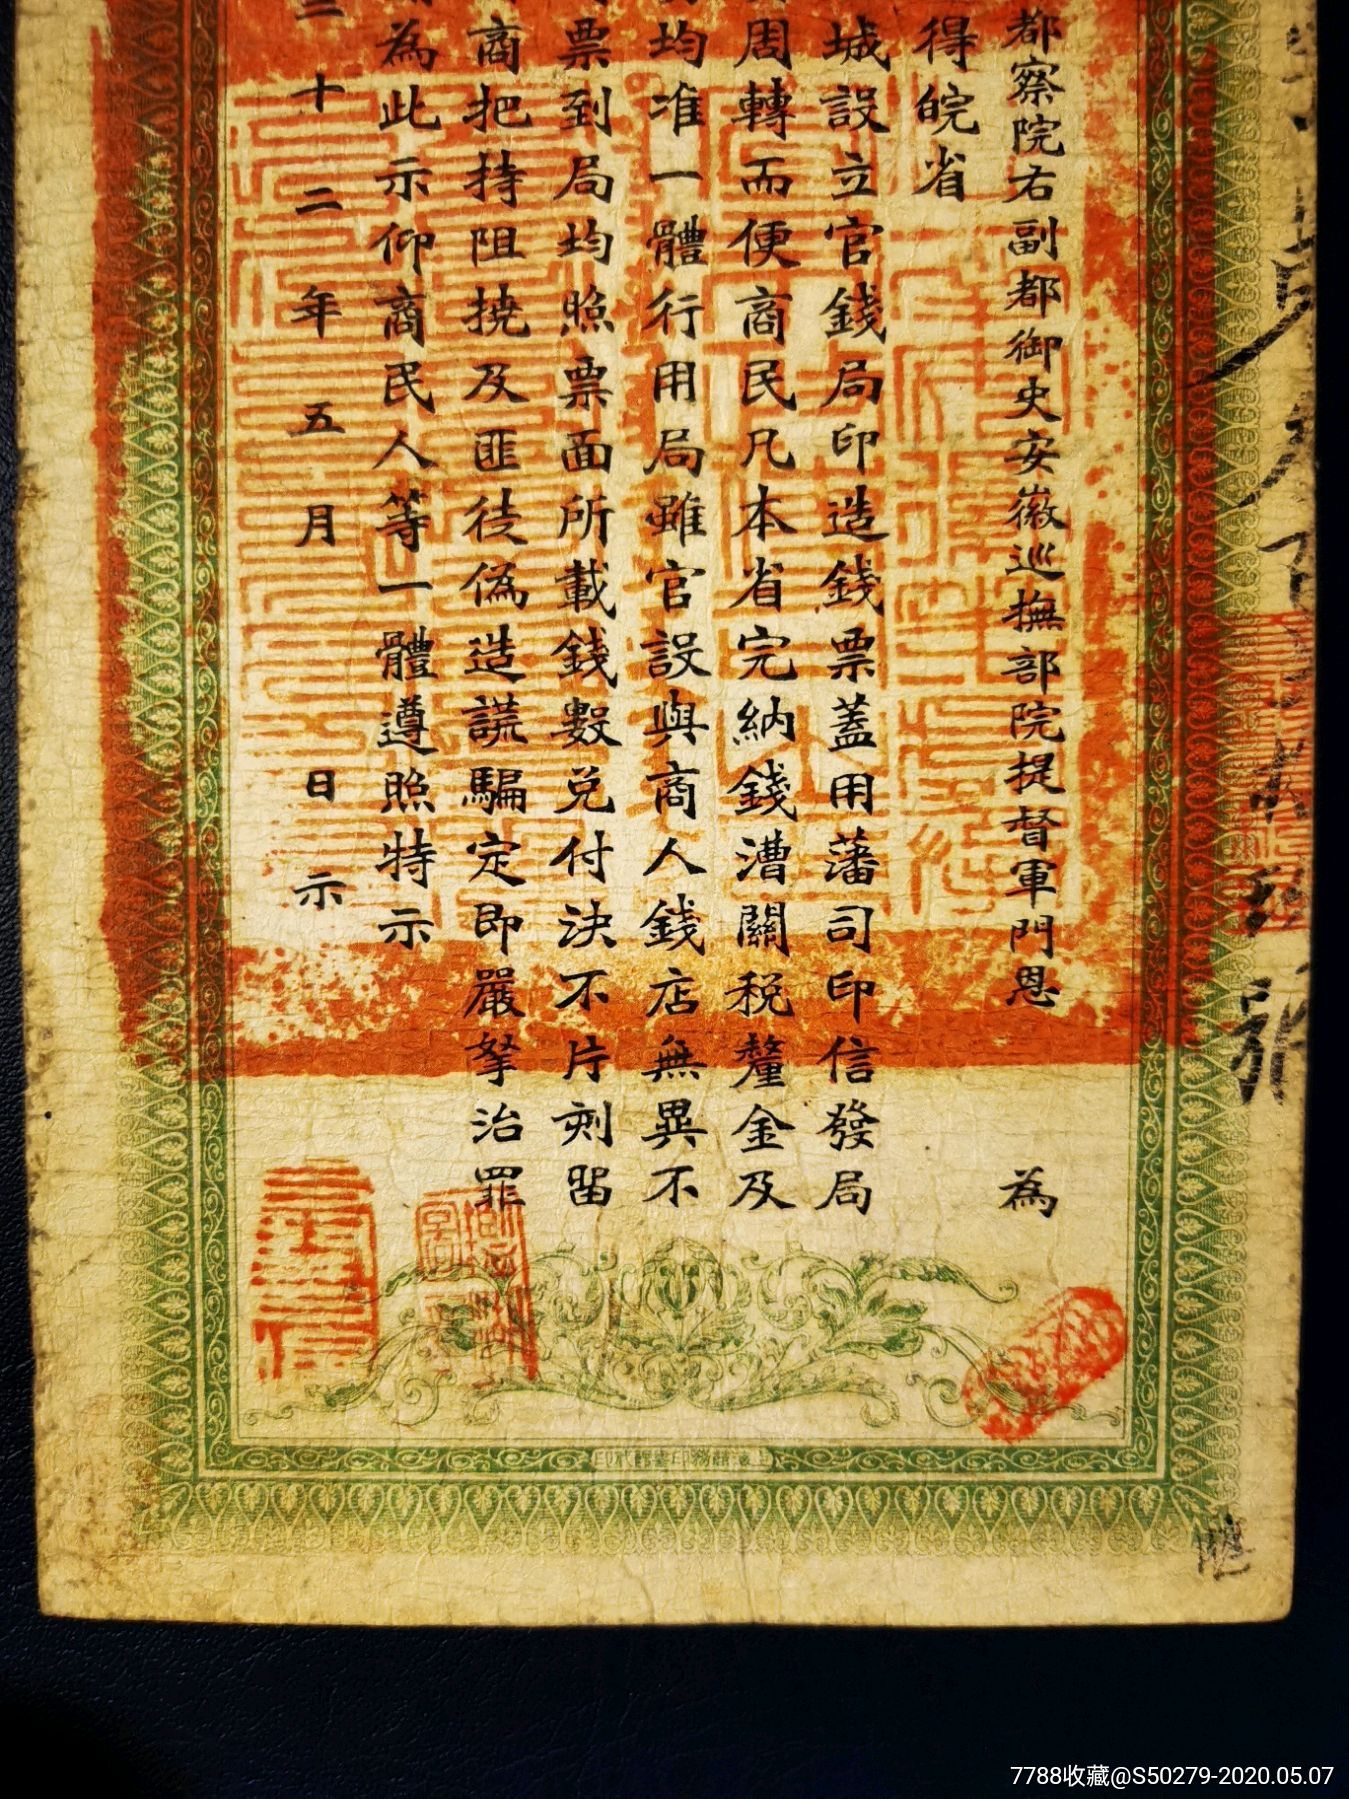 都察院右副都御史安徽巡撫部院提督軍門恩 為
得皖省
城設立官錢局印造錢票蓋用藩司印信發局
周轉而便商民凡本省完納錢漕關稅釐金及
均准一體行用局雖官設與商人錢店無異不
票到局均照票面所載錢數兌付決不片刻留
商把持阻撓及匪徒偽造謊騙定即嚴拏治罪
為此示仰商民人等一體遵照特示
三十二年五月 日示
上海商務印書館代印
7788收藏@S50279-2020.05.07